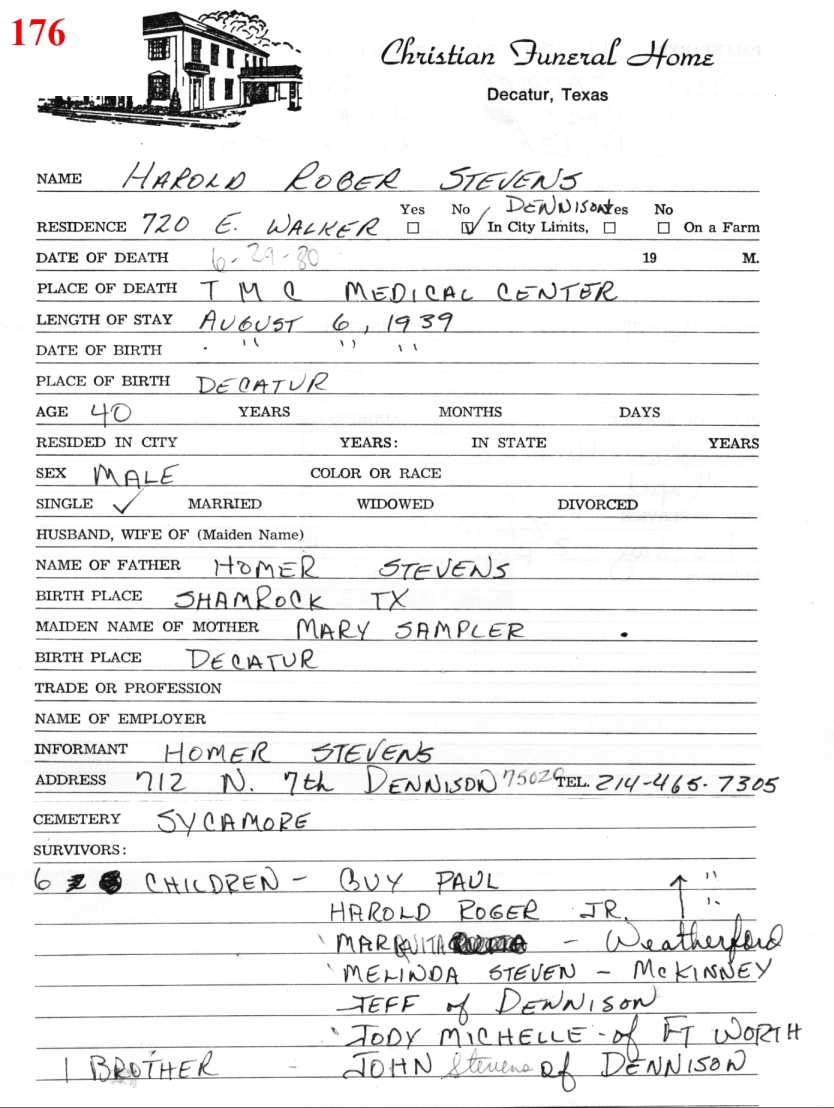 176
Christian Funeral Home
Decatur, Texas
NAME HAROLD ROGER STEVENS
RESIDENCE 720 E. WALKER Yes ☐ No ☑ In City Limits, DENNISON Yes ☐ No ☐ On a Farm
DATE OF DEATH 6-29-80 19 M.
PLACE OF DEATH T M C MEDICAL CENTER
LENGTH OF STAY AUGUST 6, 1939
DATE OF BIRTH " " "
PLACE OF BIRTH DECATUR
AGE 40 YEARS MONTHS DAYS
RESIDED IN CITY YEARS: IN STATE YEARS
SEX MALE COLOR OR RACE
SINGLE ✓ MARRIED WIDOWED DIVORCED
HUSBAND, WIFE OF (Maiden Name)
NAME OF FATHER HOMER STEVENS
BIRTH PLACE SHAMROCK TX
MAIDEN NAME OF MOTHER MARY SAMPLER
BIRTH PLACE DECATUR
TRADE OR PROFESSION
NAME OF EMPLOYER
INFORMANT HOMER STEVENS
ADDRESS 712 N. 7th DENNISON 75020 TEL. 214-465-7305
CEMETERY SYCAMORE
SURVIVORS:
6 CHILDREN - GUY PAUL "
HAROLD ROGER JR. "
MARQUITA - Weatherford
MELINDA STEVEN - McKINNEY
JEFF of DENNISON
JODY MICHELLE - of FT WORTH
1 BROTHER - JOHN Stevens of DENNISON